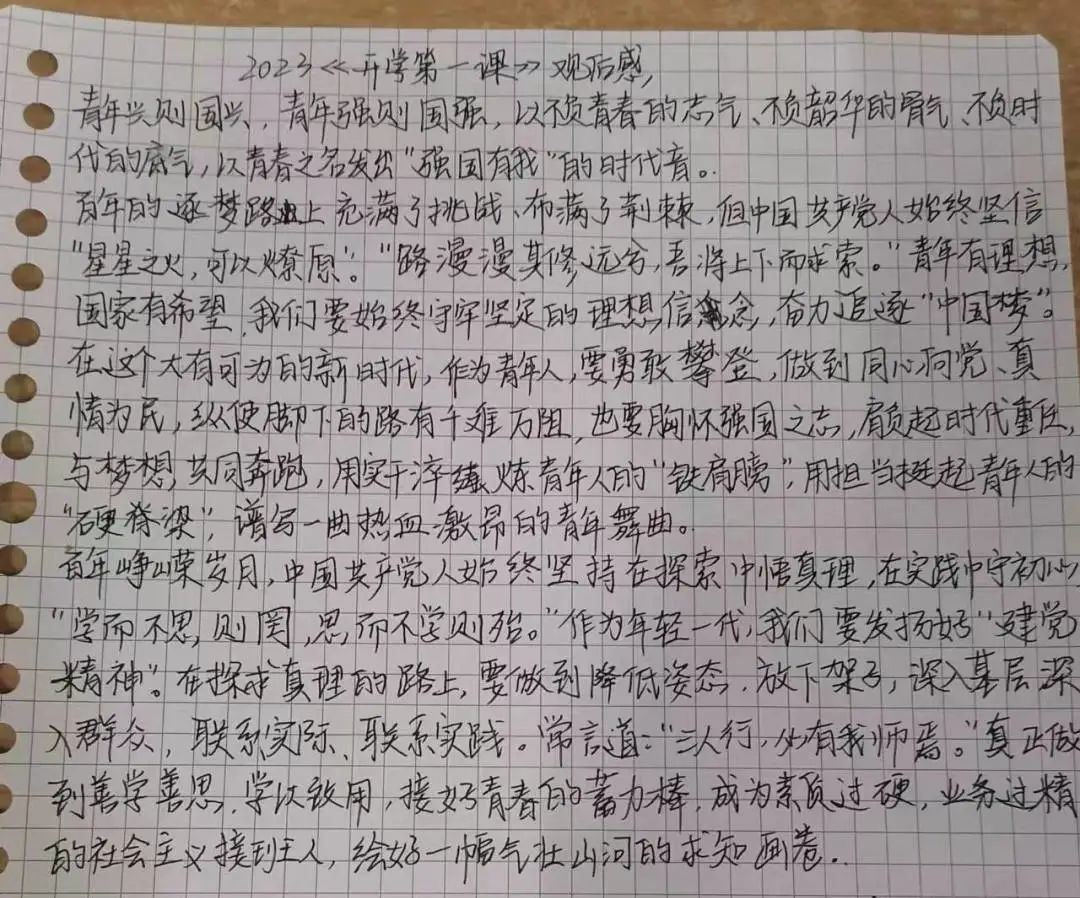 2023《开学第一课》观后感,
青年兴则国兴，青年强则国强，以不负青春的志气、不负韶华的骨气、不负时
代的底气，以青春之名发出"强国有我"的时代音。
百年的逐梦路上充满了挑战、布满了荆棘，但中国共产党人始终坚信
"星星之火，可以燎原"。"路漫漫其修远兮，吾将上下而求索。"青年有理想，
国家有希望，我们要始终守牢坚定的理想信念，奋力追逐"中国梦"。
在这个大有可为的新时代，作为青年人，要勇敢攀登，做到同心向党、真
情为民，纵使脚下的路有千难万阻，也要胸怀强国之志，肩负起时代重任，
与梦想共同奔跑，用实干淬炼青年人的"铁肩膀"，用担当挺起青年人的
"硬脊梁"，谱写一曲热血激昂的青年舞曲。
百年峥嵘岁月，中国共产党人始终坚持在探索中悟真理，在实践中守初心
"学而不思，则罔，思而不学则殆。"作为年轻一代，我们要发扬好"建党
精神"。在探求真理的路上，要做到降低姿态，放下架子，深入基层深
入群众，联系实际、联系实践。常言道："三人行，必有我师焉。"真正做
到善学善思，学以致用，接好青春的蓄力棒，成为素质过硬，业务过精
的社会主义接到主人，绘好一幅气壮山河的求知画卷..